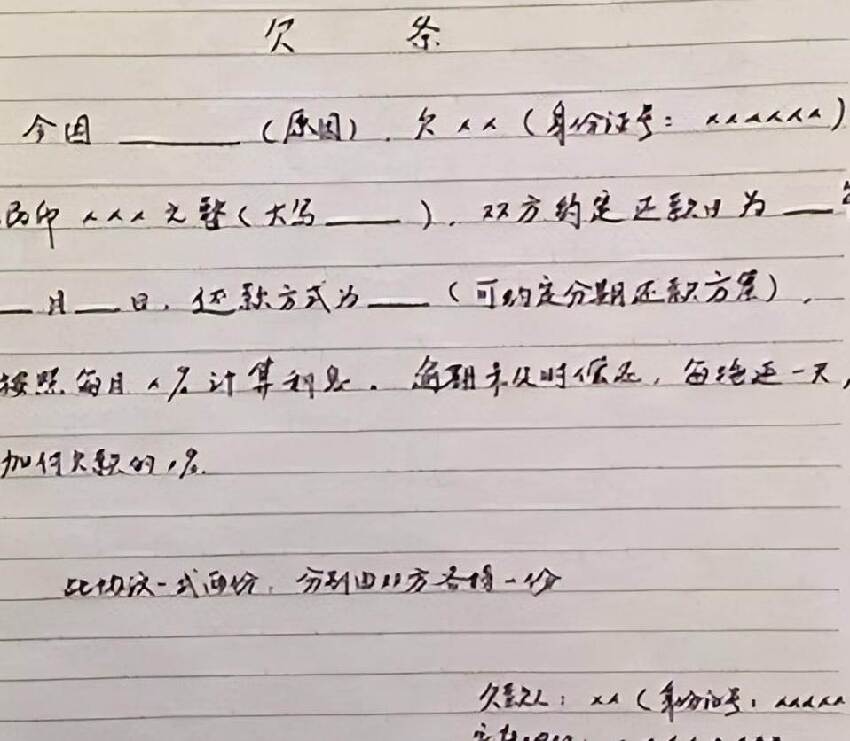 欠 条
今因 ______ (原因), 欠 xx (身份证号: xxxxxx)
民币 xxx 元整 (大写 ____ ), 双方约定还款日为 __
__ 月 __ 日, 还款方式为 ___ (可约定分期还款方案),
按照每月 x% 计算利息, 逾期未及时偿还, 每拖延一天,
加付欠款的 x%.
此协议一式两份, 分别由双方各持一份
欠款人: xx (身份证号: xxxxx